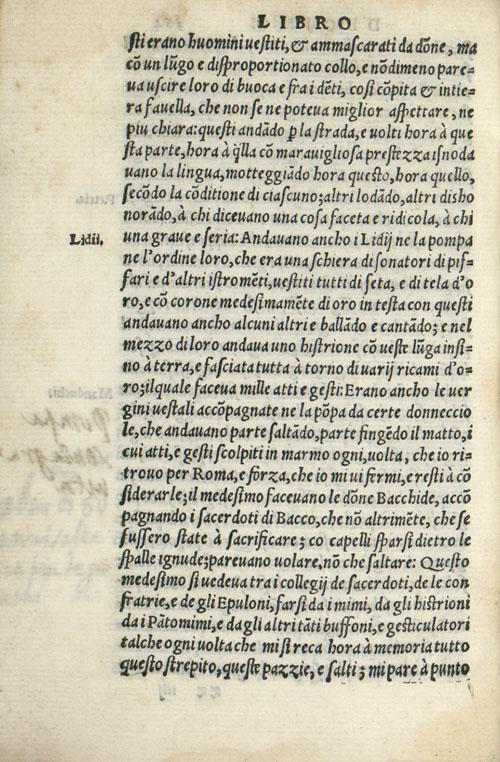 LIBRO
sti erano huomini uestiti, & ammascarati da dõne, ma
cõ un lũgo e disproportionato collo, e nõdimeno pare=
ua uscire loro di buoca e fra i dẽti, cosi cõpita & intie=
ra fauella, che non se ne poteua miglior aspettare, ne
piu chiara: questi andãdo p̱ la strada, e uolti hora à que
sta parte, hora à q̃lla cõ marauigliosa prestezza isnoda
uano la lingua, motteggiãdo hora questo, hora quello,
secõdo la cõditione di ciascuno; altri lodãdo, altri disho
norãdo, à chi diceuano una cosa faceta e ridicola, à chi
Lidii.
una graue e seria: Andauano ancho i Lidij ne la pompa
ne l'ordine loro, che era una schiera di sonatori di pif=
fari e d'altri istromẽti, uestiti tutti di seta, e di tela d'o
ro, e cõ corone medesimamẽte di oro in testa con questi
andauano ancho alcuni altri e ballãdo e cantãdo; e nel
mezzo di loro andaua uno histrione cõ ueste lũga insi=
no à terra, e fasciata tutta à torno di uarij ricami d'o=
ro; ilquale faceua mille atti e gesti: Erano ancho le uer
gini uestali accõpagnate ne la põpa da certe donneccio
le, che andauano parte saltãdo, parte fingẽdo il matto, i
cui atti, e gesti scolpiti in marmo ogni, uolta, che io ri=
trouo per Roma, e forza, che io mi ui fermi, e resti à cõ
siderarle; il medesimo faceuano le dõne Bacchide, accõ
pagnando i sacerdoti di Bacco, che nõ altrimẽte, che se
fussero state à sacrificare; co capelli sparsi dietro le
spalle ignude; pareuano uolare, nõ che saltare: Questo
medesimo si uedeua tra i collegij de sacerdoti, de le con
fratrie, e de gli Epuloni, farsi da i mimi, da gli histrioni
da i Pãtomimi, e dagli altri tãti buffoni, e gesticulatori
talche ogni uolta che mi si reca hora à memoria tutto
questo strepito, queste pazzie, e salti; mi pare à punto